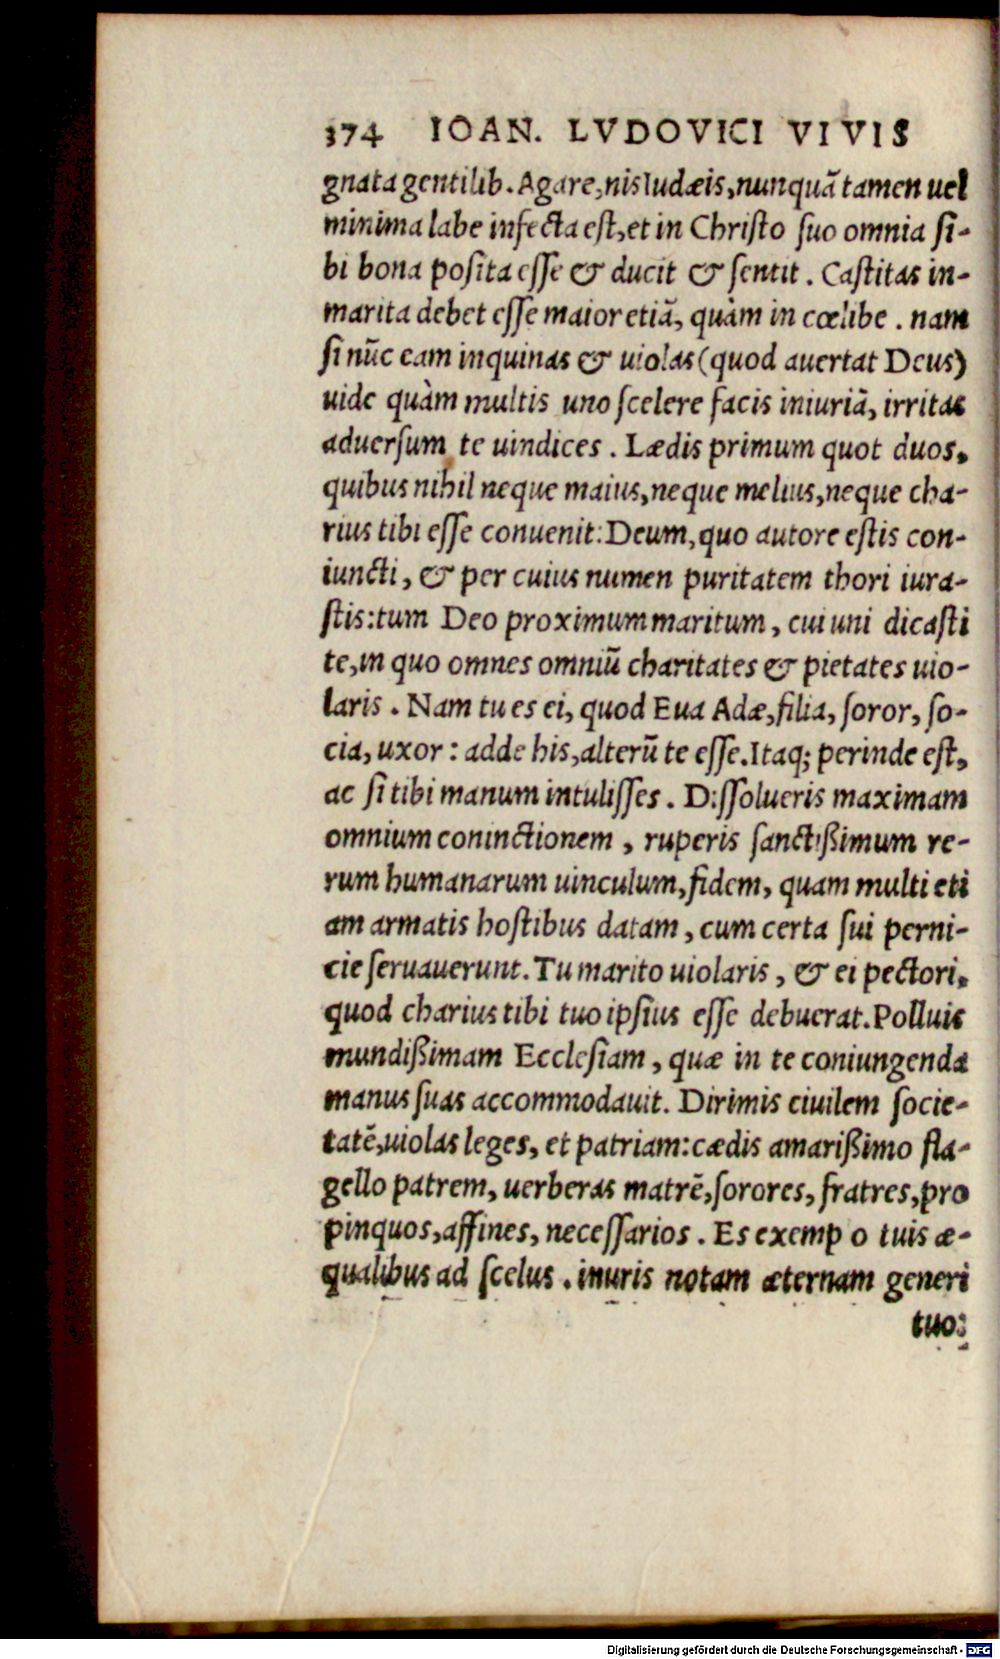 374 IOAN. LVDOVICI VIVIS
gnata gentilib. Agare, nis Iudæis, nunquã tamen uel
minima labe infecta est, et in Christo suo omnia si-
bi bona posita esse & ducit & sentit. Castitas in-
marita debet esse maior etiã, quàm in cœlibe. nam
si nũc eam inquinas & uiolas (quod auertat Deus)
uide quàm multis uno scelere facis iniuriã, irritas
aduersum te uindices. Lædis primum quot duos,
quibus nihil neque maius, neque melius, neque cha-
rius tibi esse conuenit: Deum, quo autore estis con-
iuncti, & per cuius numen puritatem thori iura-
stis: tum Deo proximum maritum, cui uni dicasti
te, in quo omnes omniũ charitates & pietates uio-
laris. Nam tu es ei, quod Eua Adæ, filia, soror, so-
cia, uxor: adde his, alterũ te esse. Itaq; perinde est,
ac si tibi manum intulisses. Dissolueris maximam
omnium coninctionem, ruperis sanctißimum re-
rum humanarum uinculum, fidem, quam multi eti
am armatis hostibus datam, cum certa sui perni-
cie seruauerunt. Tu marito uiolaris, & ei pectori,
quod charius tibi tuo ipsius esse debuerat. Polluis
mundißimam Ecclesiam, quæ in te coniungenda
manus suas accommodauit. Dirimis ciuilem socie-
tatẽ, uiolas leges, et patriam: cædis amarißimo fla-
gello patrem, uerberas matrẽ, sorores, fratres, pro
pinquos, affines, necessarios. Es exemp o tuis æ-
qualibus ad scelus. inuris notam æternam generi
tuo:
Digitalisierung gefördert durch die Deutsche Forschungsgemeinschaft - DFG